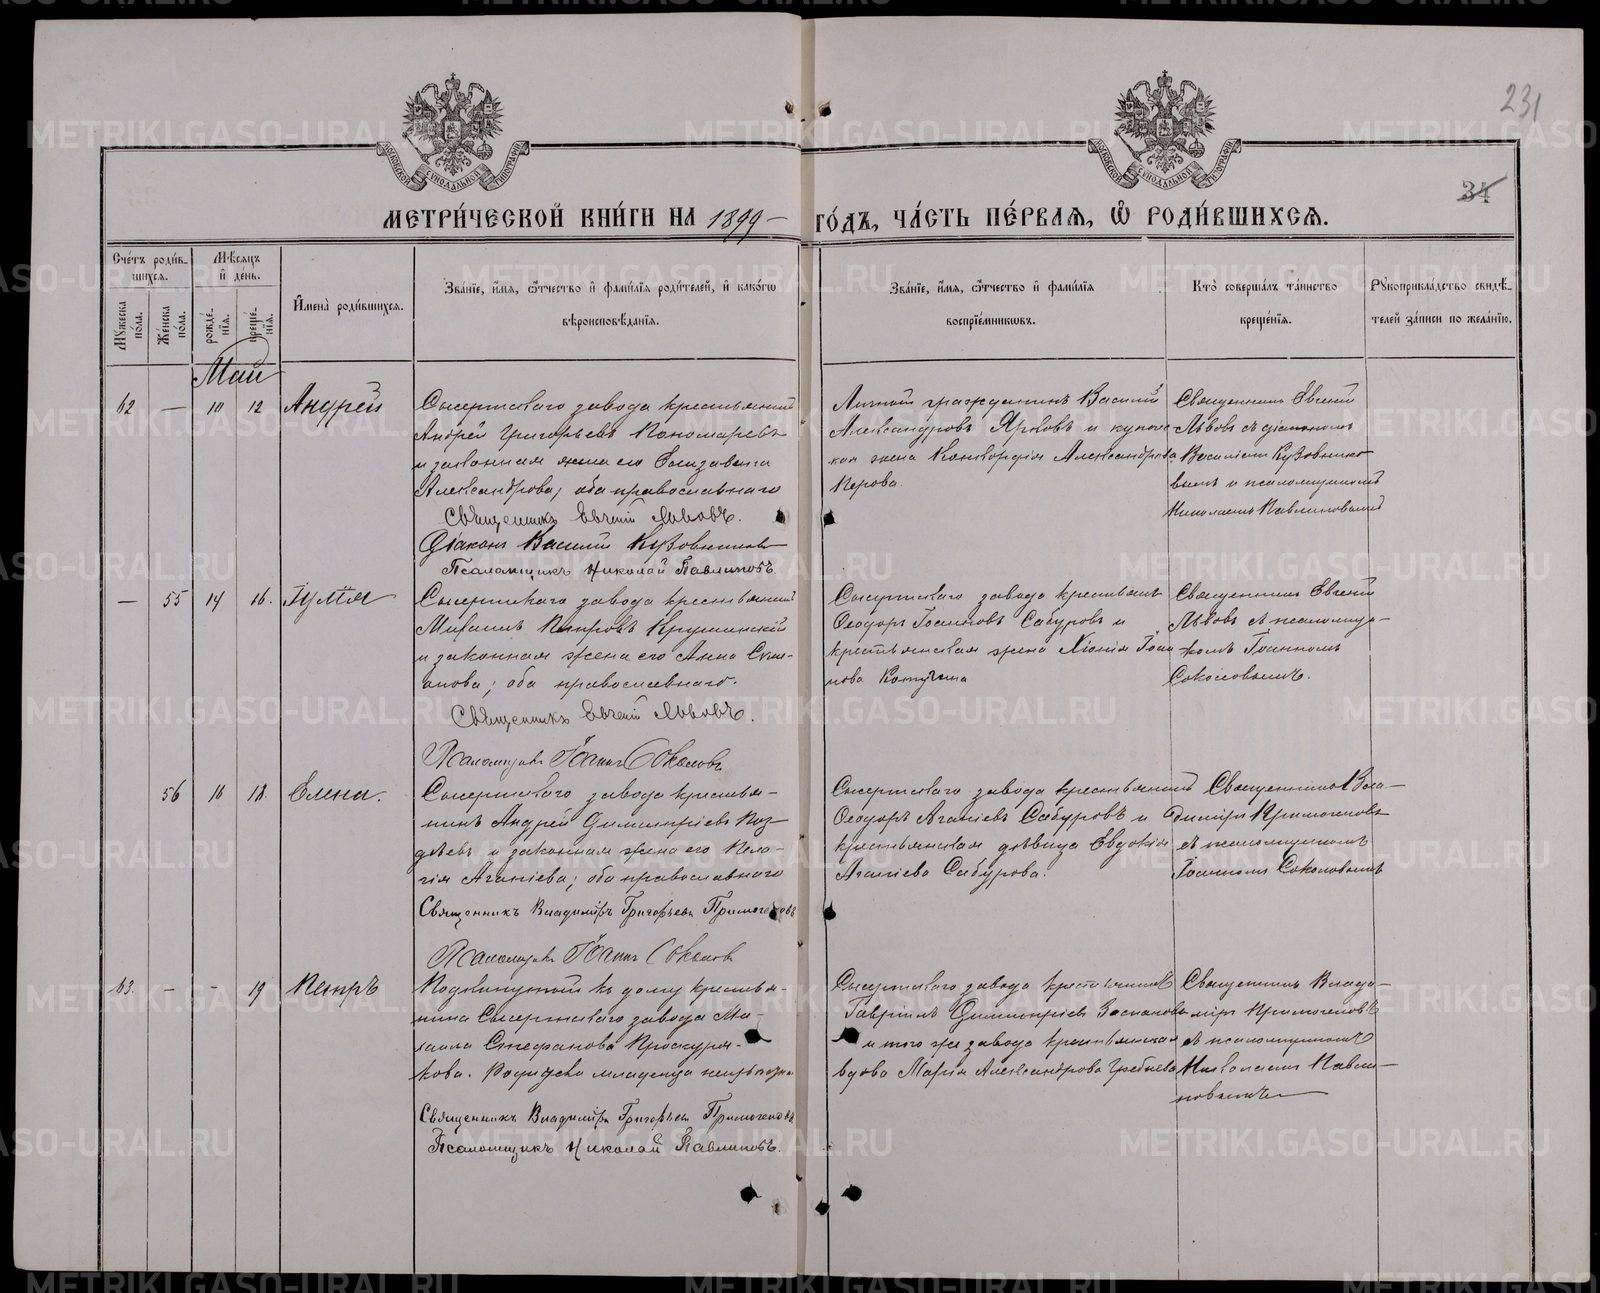 231
34
МЕТРИ́ЧЕСКОЙ КНИ́ГИ НА 1899 – ГО́ДЪ, ЧА́СТЬ ПЕ́РВАЯ, Ѡ҆ РОДИ́ВШИХСЯ.
Сче́тъ роди́вшихся.
Мѣ́сяцъ и҆ де́нь.
Мꙋ́жеска по́ла.
Же́нска по́ла.
рожде́нїѧ.
креще́нїѧ.
И҆мена̀ роди́вшихся.
Зва́нїе, и҆́мѧ, ѻ҆́тчество и҆ фами́лїѧ роди́телей, и҆ како́гѡ вѣроисповѣ́данїѧ.
Зва́нїе, и҆́мѧ, ѻ҆́тчество и҆ фами́лїѧ воспрїе́мникѡвъ.
Кто̀ соверша́лъ та́инство креще́нїѧ.
Рꙋкоприкла́дство свидѣ́телей за́писи по жела́нїю.
Май
62 — 10 12 Андрей
Сысертскаго завода крестьянинъ
Андрей Григорьевъ Пономаревъ
и законная жена его Елизавета
Александрова; оба православнаго
Священникъ Евгеній Львовъ.
Діаконъ Василій Кузовниковъ
Псаломщикъ Николай Павлиновъ
Личный гражданинъ Василій
Александровъ Ярковъ и купече-
ская жена Конкордія Александрова
Перова.
Священникъ Евгеній
Львовъ съ діакономъ
Василіемъ Кузовнико-
вымъ и псаломщикомъ
Николаемъ Павлиновымъ
— 55 14 16. Гулія
Сысертскаго завода крестьянинъ
Михаилъ Петровъ Крушинскій
и законная жена его Анна Сте-
анова; оба православнаго.
Священникъ Евгеній Львовъ.
Псаломщикъ Іоаннъ Соколовъ
Сысертскаго завода крестьян
Ѳеодоръ Іоанновъ Сабуровъ и
крестьянская жена Хіонія Іоан
нова Котугина
Священникъ Евгеній
Львовъ съ псаломщи-
комъ Іоанномъ
Соколовымъ.
56 16 18. Елена.
Сысертскаго завода крестья-
нинъ Андрей Димитріевъ Поз-
дѣевъ и законная жена его Пела-
гія Агапіева; оба православнаго
Священникъ Владиміръ Григорьевъ Примогеновъ
Псаломщикъ Іоаннъ Соколовъ
Сысертскаго завода крестьянинъ
Ѳеодоръ Агапіевъ Сабуровъ и
крестьянская дѣвица Евдокія
Агапіева Сабурова.
Священникъ Вла-
диміръ Примогеновъ
съ псаломщикомъ
Іоанномъ Соколовымъ
63. - - 19 Петръ
Подкинутый къ дому крестья-
нина Сысертскаго завода Ми-
хаила Стефанова Проскуря-
кова. Родители младенца неизвѣстны
Священникъ Владиміръ Григорьевъ Примогеновъ
Псаломщикъ Николай Павлиновъ.
Сысертскаго завода крестьянинъ
Гавріилъ Димитріевъ
и того же завода крестьянская
вдова Марія Александрова Гребнева
Священникъ Влади-
міръ Примогеновъ
съ псаломщикомъ
Николаемъ Павли-
новымъ